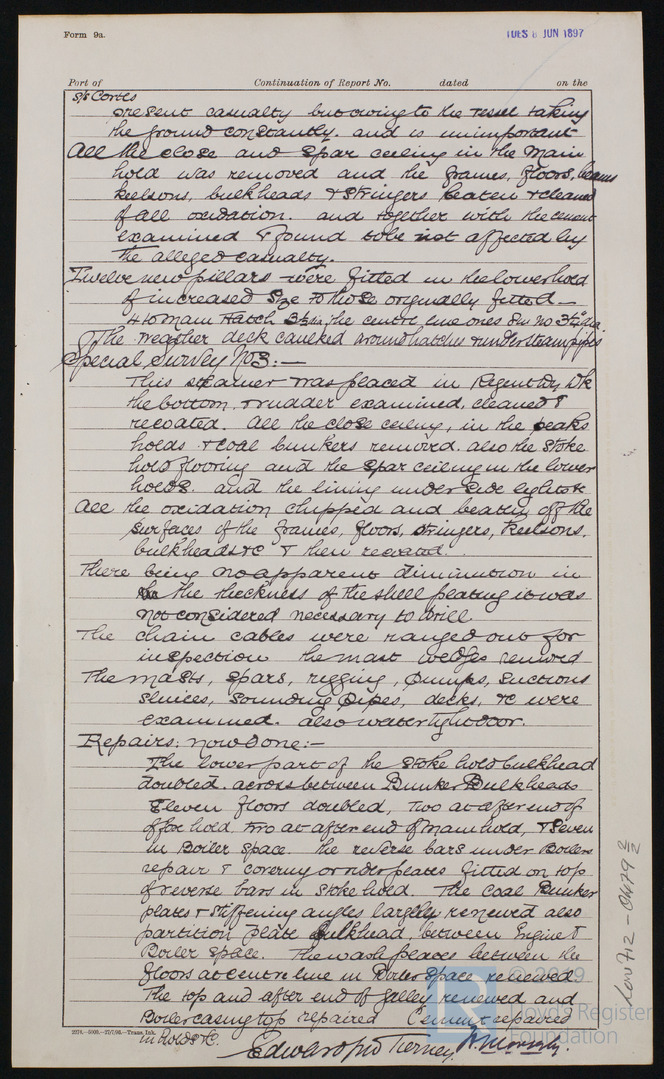 Form 9a.
TUES 8 JUN 1897
Port of Continuation of Report No. dated on the
S/S Cortes
present casualty but owing to the vessel taking
the ground constantly. and is unimportant
All the close and spar ceiling in the Main
hold was removed and the frames, floors, beams
keelsons, bulkheads & stringers beaten & cleaned
of all oxidation. and together with the cement
examined & found to be not affected by
the alleged casualty.
Twelve new pillars were fitted in the lower hold
of increased size to those originally fitted —
4 to Main Hatch 3½ dia, the centre line ones no 3½" dia.
The weather deck caulked around hatches & under steam pipes
Special Survey No 3:—
This steamer was placed in Regent Dry Dk
the bottom & rudder examined, cleaned &
recoated. All the close ceiling, in the peaks
holds & coal bunkers removed. also the stoke
hold flooring and the spar ceiling in the lower
holds. and the lining under side lights &c
All the oxidation chipped and beaten off the
surfaces of the frames, floors, stringers, keelsons,
bulkheads &c & then recoated.
There being no apparent diminution in
the thickness of the shell plating it was
not considered necessary to drill
The chain cables were ranged out for
inspection the mast wedges removed
The masts, spars, rigging, pumps, suctions
sluices, sounding pipes, decks, &c were
examined. also watertight door.
Repairs: now done:—
The lower part of the stoke hold bulkhead
doubled across between Bunker Bulkheads
Eleven floors doubled, two at after end of
fore hold, two at after end of Main hold, & seven
in Boiler space. the reverse bars under Boilers
repair & covering or rider plates fitted on top
of reverse bars in stoke hold. The coal Bunker
plates & stiffening angles largely renewed also
partition plate bulkhead, between Engine &
Boiler space. The wash plates between the
floors at centre line in Boiler Space renewed
The top and after end of galley renewed and
Boiler casing top repaired Cement repaired
in holds &c.
Edward Tierney
2276.—5000.—27/7/96.—Trans. Ink.
© 2019
Lloyd's Register
Foundation